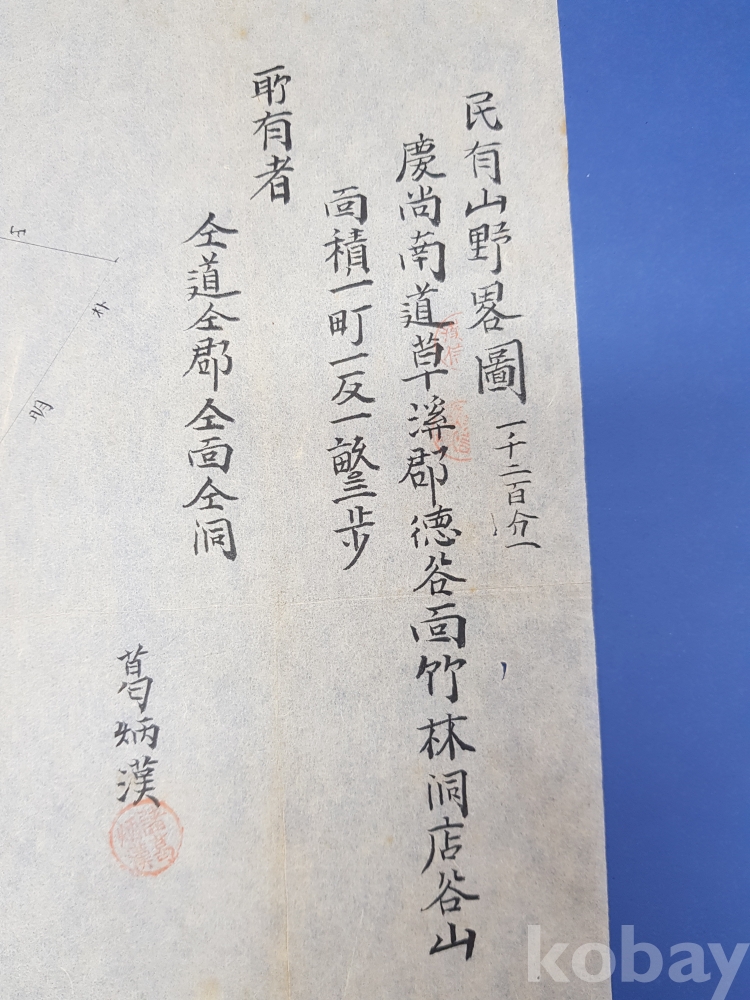 民有山野畧圖 一千二百分一
慶尚南道草溪郡德谷面竹林洞店谷山
面積一町一反一畝三步
所有者
仝道仝郡仝面仝洞
葛炳漢
kobay